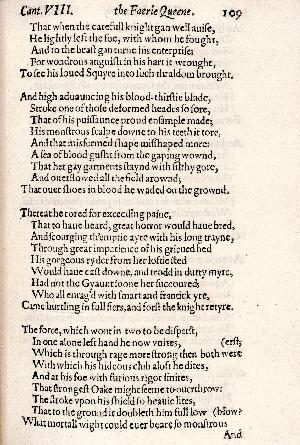 Cant. VIII. the Faerie Queene. 109
That when the carefull knight gan well auise,
He lightly left the foe, with whom he fought,
And to the beast gan turne his enterprise;
For wondrous anguish in his hart it wrought,
To see his loued Squyre into such thraldom brought.
And high aduauncing his blood-thirstie blade,
Stroke one of those deformed heades so sore,
That of his puissance proud ensample made;
His monstrous scalpe downe to his teeth it tore,
And that misformed shape misshaped more:
A sea of blood gusht from the gaping wownd,
That her gay garments staynd with filthy gore,
And ouerflowed all the field arownd;
That ouer shoes in blood he waded on the grownd.
Thereat he rored for exceeding paine,
That to haue heard, great horror would haue bred,
And scourging th'emptie ayre with his long trayne,
Through great impatience of his grieued hed
His gorgeous ryder from her loftie sted
Would haue cast downe, and trodd in durty myre,
Had not the Gyaunt soone her succoured;
Who all enrag'd with smart and frantick yre,
Came hurtling in full fiers, and forst the knight retyre.
The force, which wont in two to be disperst,
In one alone left hand he now vnites, (erst;
Which is through rage more strong then both were
With which his hideous club aloft he dites,
And at his foe with furious rigor smites,
That strongest Oake might seeme to ouerthrow:
The stroke vpon his shield so heauie lites,
That to the ground it doubleth him full low (blow?
What mortall wight could euer beare so monstrous
And